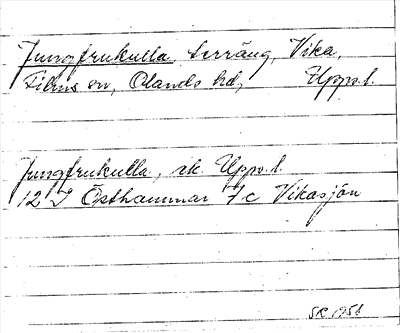 Jungfrukulla, terräng, Vika,
Films sn, Olands hd, Upps.l.
Jungfrukulla, ek. Upps.l.
12 I Östhammar 7 c Vikasjön
SR 1958